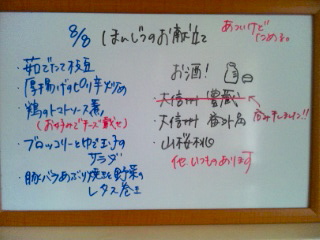 8/8 ほんじつのお献立て
・茹でたて枝豆
・厚揚げのピリ辛炒め
・鶏のトマトソース煮
(お好みでチーズ載せ)
・ブロッコリーとゆで玉子の
サラダ
・豚バラあぶり焼きと野菜の
レタス巻き
あついけど
お酒!
・大信州 豊蔵
・大信州 番外品
・山桜桃
他、いつものあります